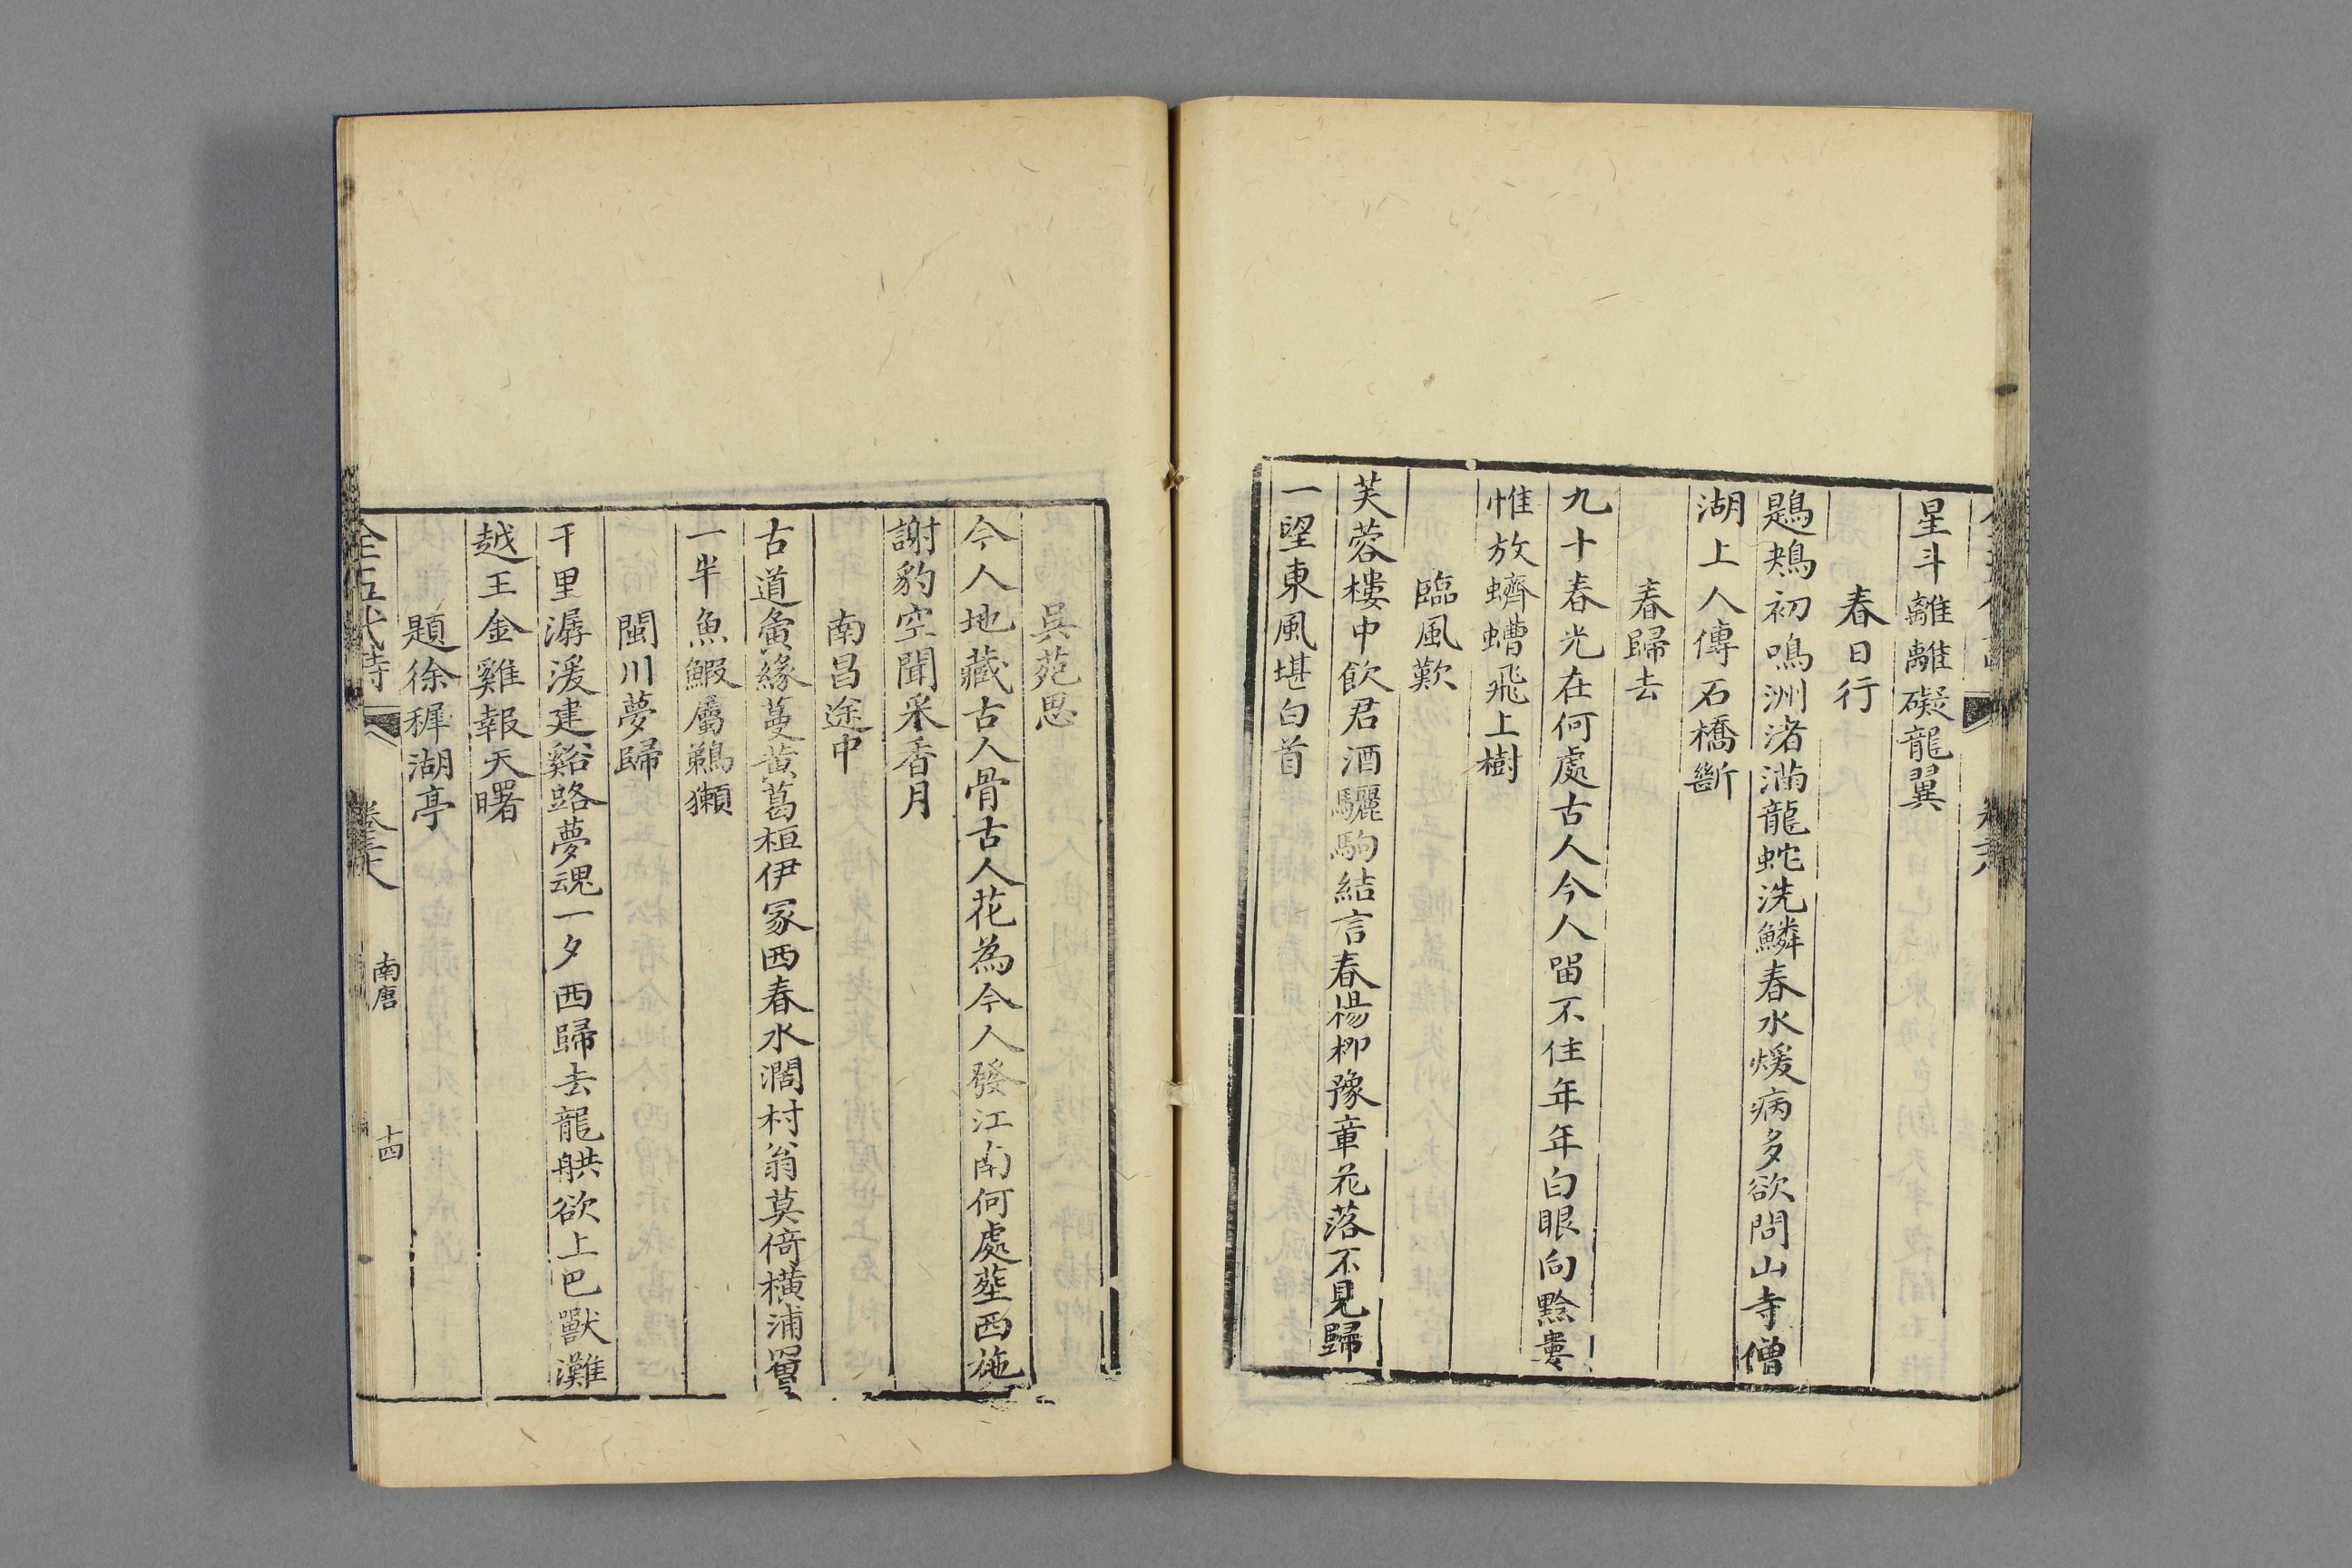 星斗離離礙龍翼
春日行
鶗鴂初鳴洲渚滿龍蛇洗鱗春水煖病多欲問山寺僧
湖上人傳石橋斷
春歸去
九十春光在何處古人今人留不住年年白眼向黔婁
惟放蠐螬飛上樹
臨風歎
芙蓉樓中飲君酒驪駒結言春楊柳豫章花落不見歸
一望東風堪白首
吳苑思
今人地藏古人骨古人花為今人發江南何處葬西施
謝豹空聞采香月
南昌途中
古道夤緣蔓黃葛桓伊冢西春水濶村翁莫倚橫浦罾
一半魚鰕屬鵜獺
閩川夢歸
千里潺湲建谿路夢魂一夕西歸去龍舼欲上巴獸灘
越王金雞報天曙
題徐穉湖亭
全五代詩
南唐
十四